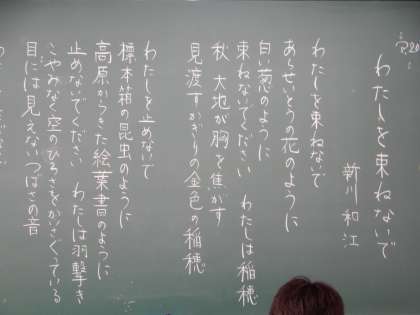 P20
わたしを束ねないで
新川和江
わたしを束ねないで
あらせいとうの花のように
白い葱のように
束ねないでください　わたしは稲穂
秋　大地が胸を焦がす
見渡すかぎりの金色の稲穂
わたしを止めないで
標本箱の昆虫のように
高原からきた絵葉書のように
止めないでください　わたしは羽撃き
こやみなく空のひろさをかいさぐっている
目には見えないつばさの音